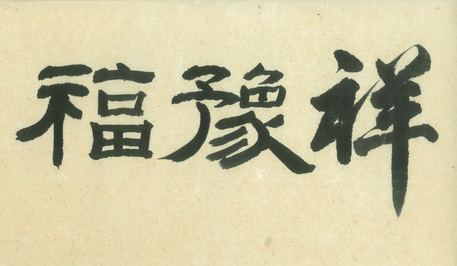 祥豫福